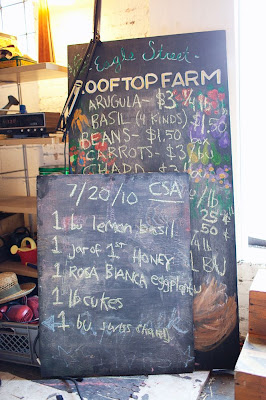 Eagle Street
ROOFTOP FARM
ARUGULA- $3 1/4 lb
BASIL (4 KINDS) $1.50
BEANS- $1.50
CARROTS- $3
CHARD
lb
25¢
.50¢
1/4 lb
BU
7/20/10 CSA
1 bu lemon basil
1 jar of 1st HONEY
1 ROSA BIANCA eggplant
1 lb cukes
1 bu swiss chard